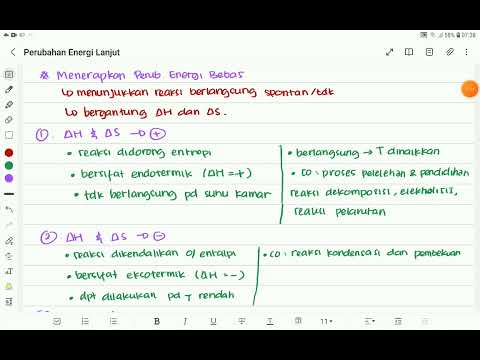 58% 07:38
Perubahan Energi Lanjut
* Menerapkan Perub Energi Bebas
↳ menunjukkan reaksi berlangsung spontan/tdk
↳ bergantung ΔH dan ΔS.
① ΔH & ΔS → ⊕
• reaksi didorong entropi
• bersifat endotermik (ΔH = +)
• tdk berlangsung pd suhu kamar
• berlangsung → T dinaikkan
• co : proses pelelehan & pendidihan
reaksi dekomposisi, elektrolisis,
reaksi pelarutan
② ΔH & ΔS → ⊖
• reaksi dikendalikan o/ entalpi
• bersifat eksotermik (ΔH = -)
• dpt dilakukan pd T rendah
• co : reaksi kondensasi dan pembekuan
B I U T 11